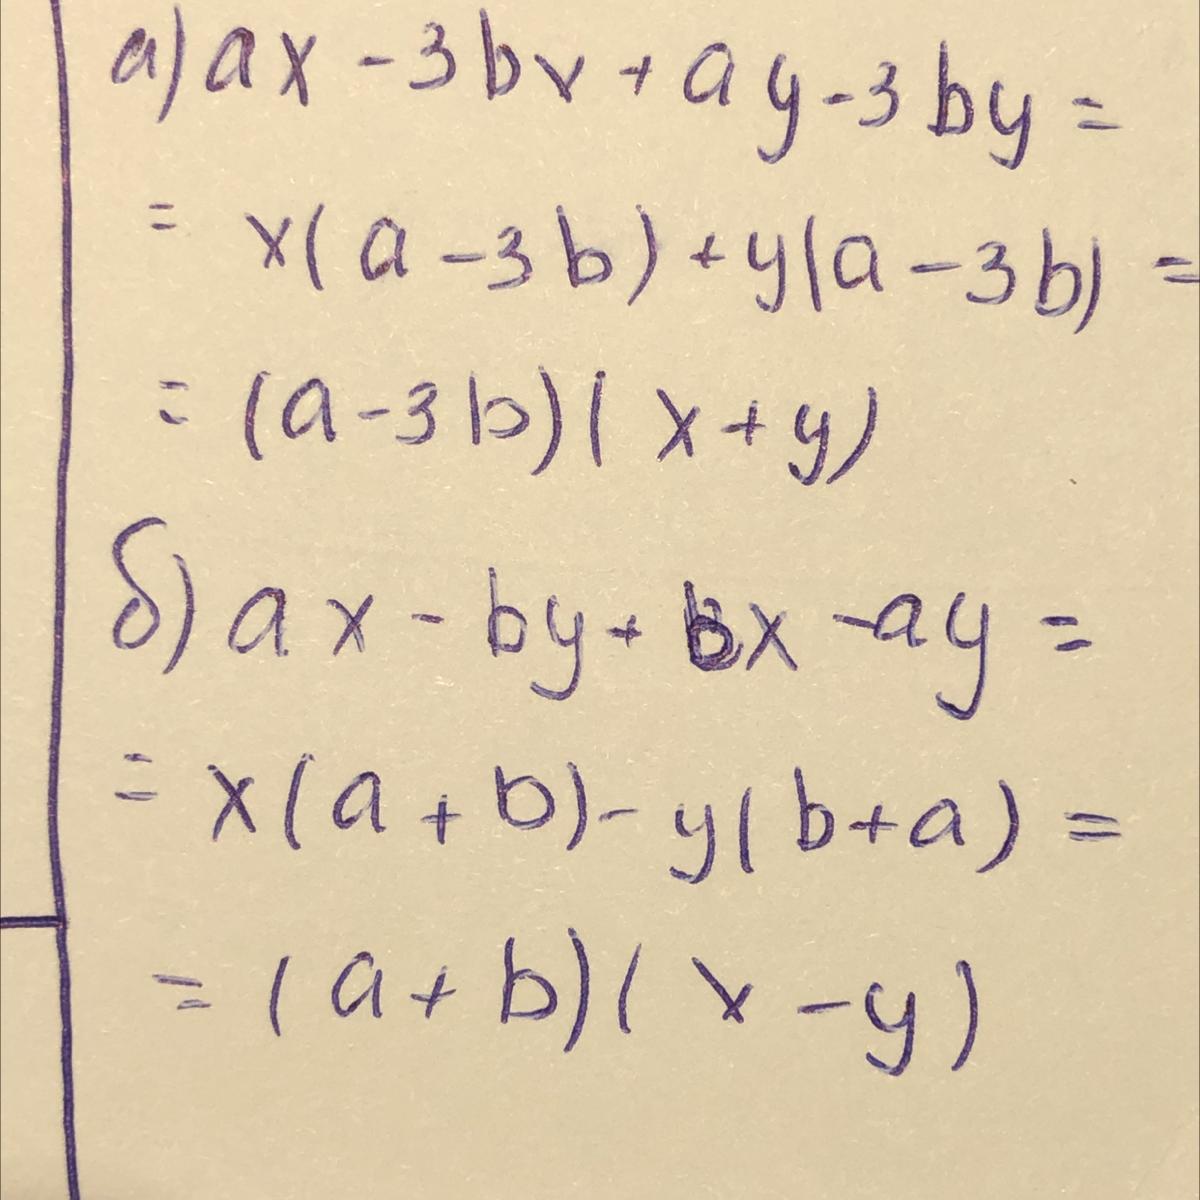 а) ax - 3bx + ay - 3by =
= x(a - 3b) + y(a - 3b) =
= (a - 3b)(x + y)
б) ax - by + bx - ay =
= x(a + b) - y(b + a) =
= (a + b)(x - y)